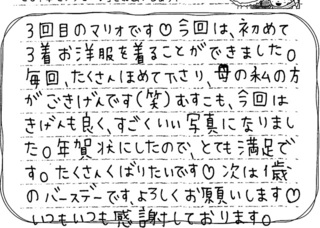 3回目のマリオです♡今回は、初めて
3着お洋服を着ることができました。
毎回、たくさんほめて下さり、母の私の方
がごきげんです(笑)むすこも、今回は
きげんも良く、すごくいい写真になりまし
た。年賀状にしたので、とても満足で
す。たくさんくばりたいです♡次は1歳
のバースデーです。よろしくお願いします♡
いつもいつも感謝しております。